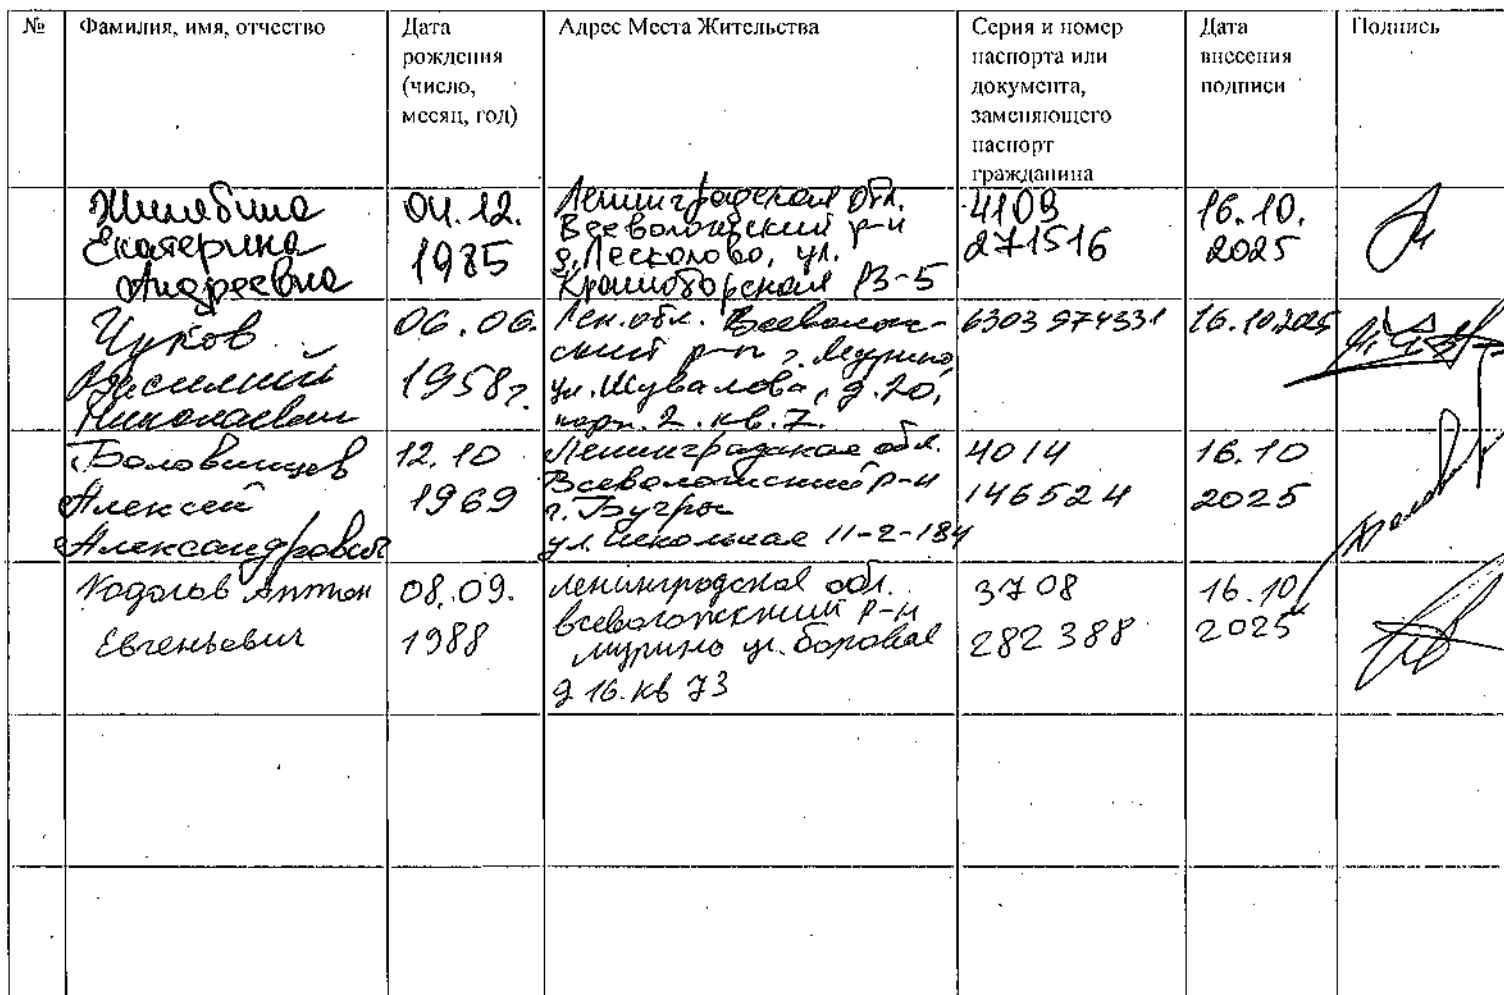 №
Фамилия, имя, отчество
Дата
рождения
(число,
месяц, год)
Адрес Места Жительства
Серия и номер
паспорта или
документа,
заменяющего
паспорт
гражданина
Дата
внесения
подписи
Подпись
Екатерина
Андреевна
04.12.
1985
Ленинградская обл.
Всеволожский р-н
д. Лесколово, ул.
Красноборская 13-5
4109
271516
16.10.
2025
Чуков
Василий
Николаевич
06.06.
1958г.
Лен. обл. Всеволож-
ский р-н г. Мурино,
ул. Шувалова, д. 20,
корп. 2. кв. 7.
6303 974331
16.10.2025
Боловинцев
Алексей
Александрович
12.10
1969
Ленинградская обл.
Всеволожский р-н
г. Бугры
ул. Школьная 11-2-184
4014
146524
16.10
2025
Антон
Евгеньевич
08.09.
1988
ленинградская обл.
всеволожский р-н
мурино ул. боровая
д 16. кв 73
3708
282388
16.10
2025